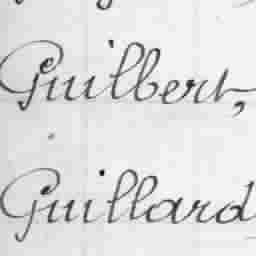 Guilbert,
Guillard